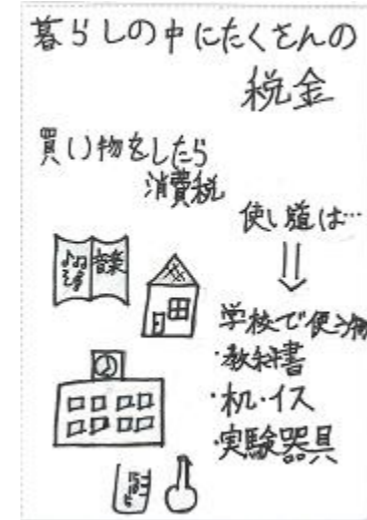 暮らしの中にたくさんの
税金
買い物をしたら
消費税
使い道は…
音楽
学校で使う物
・教科書
・机・イス
・実験器具